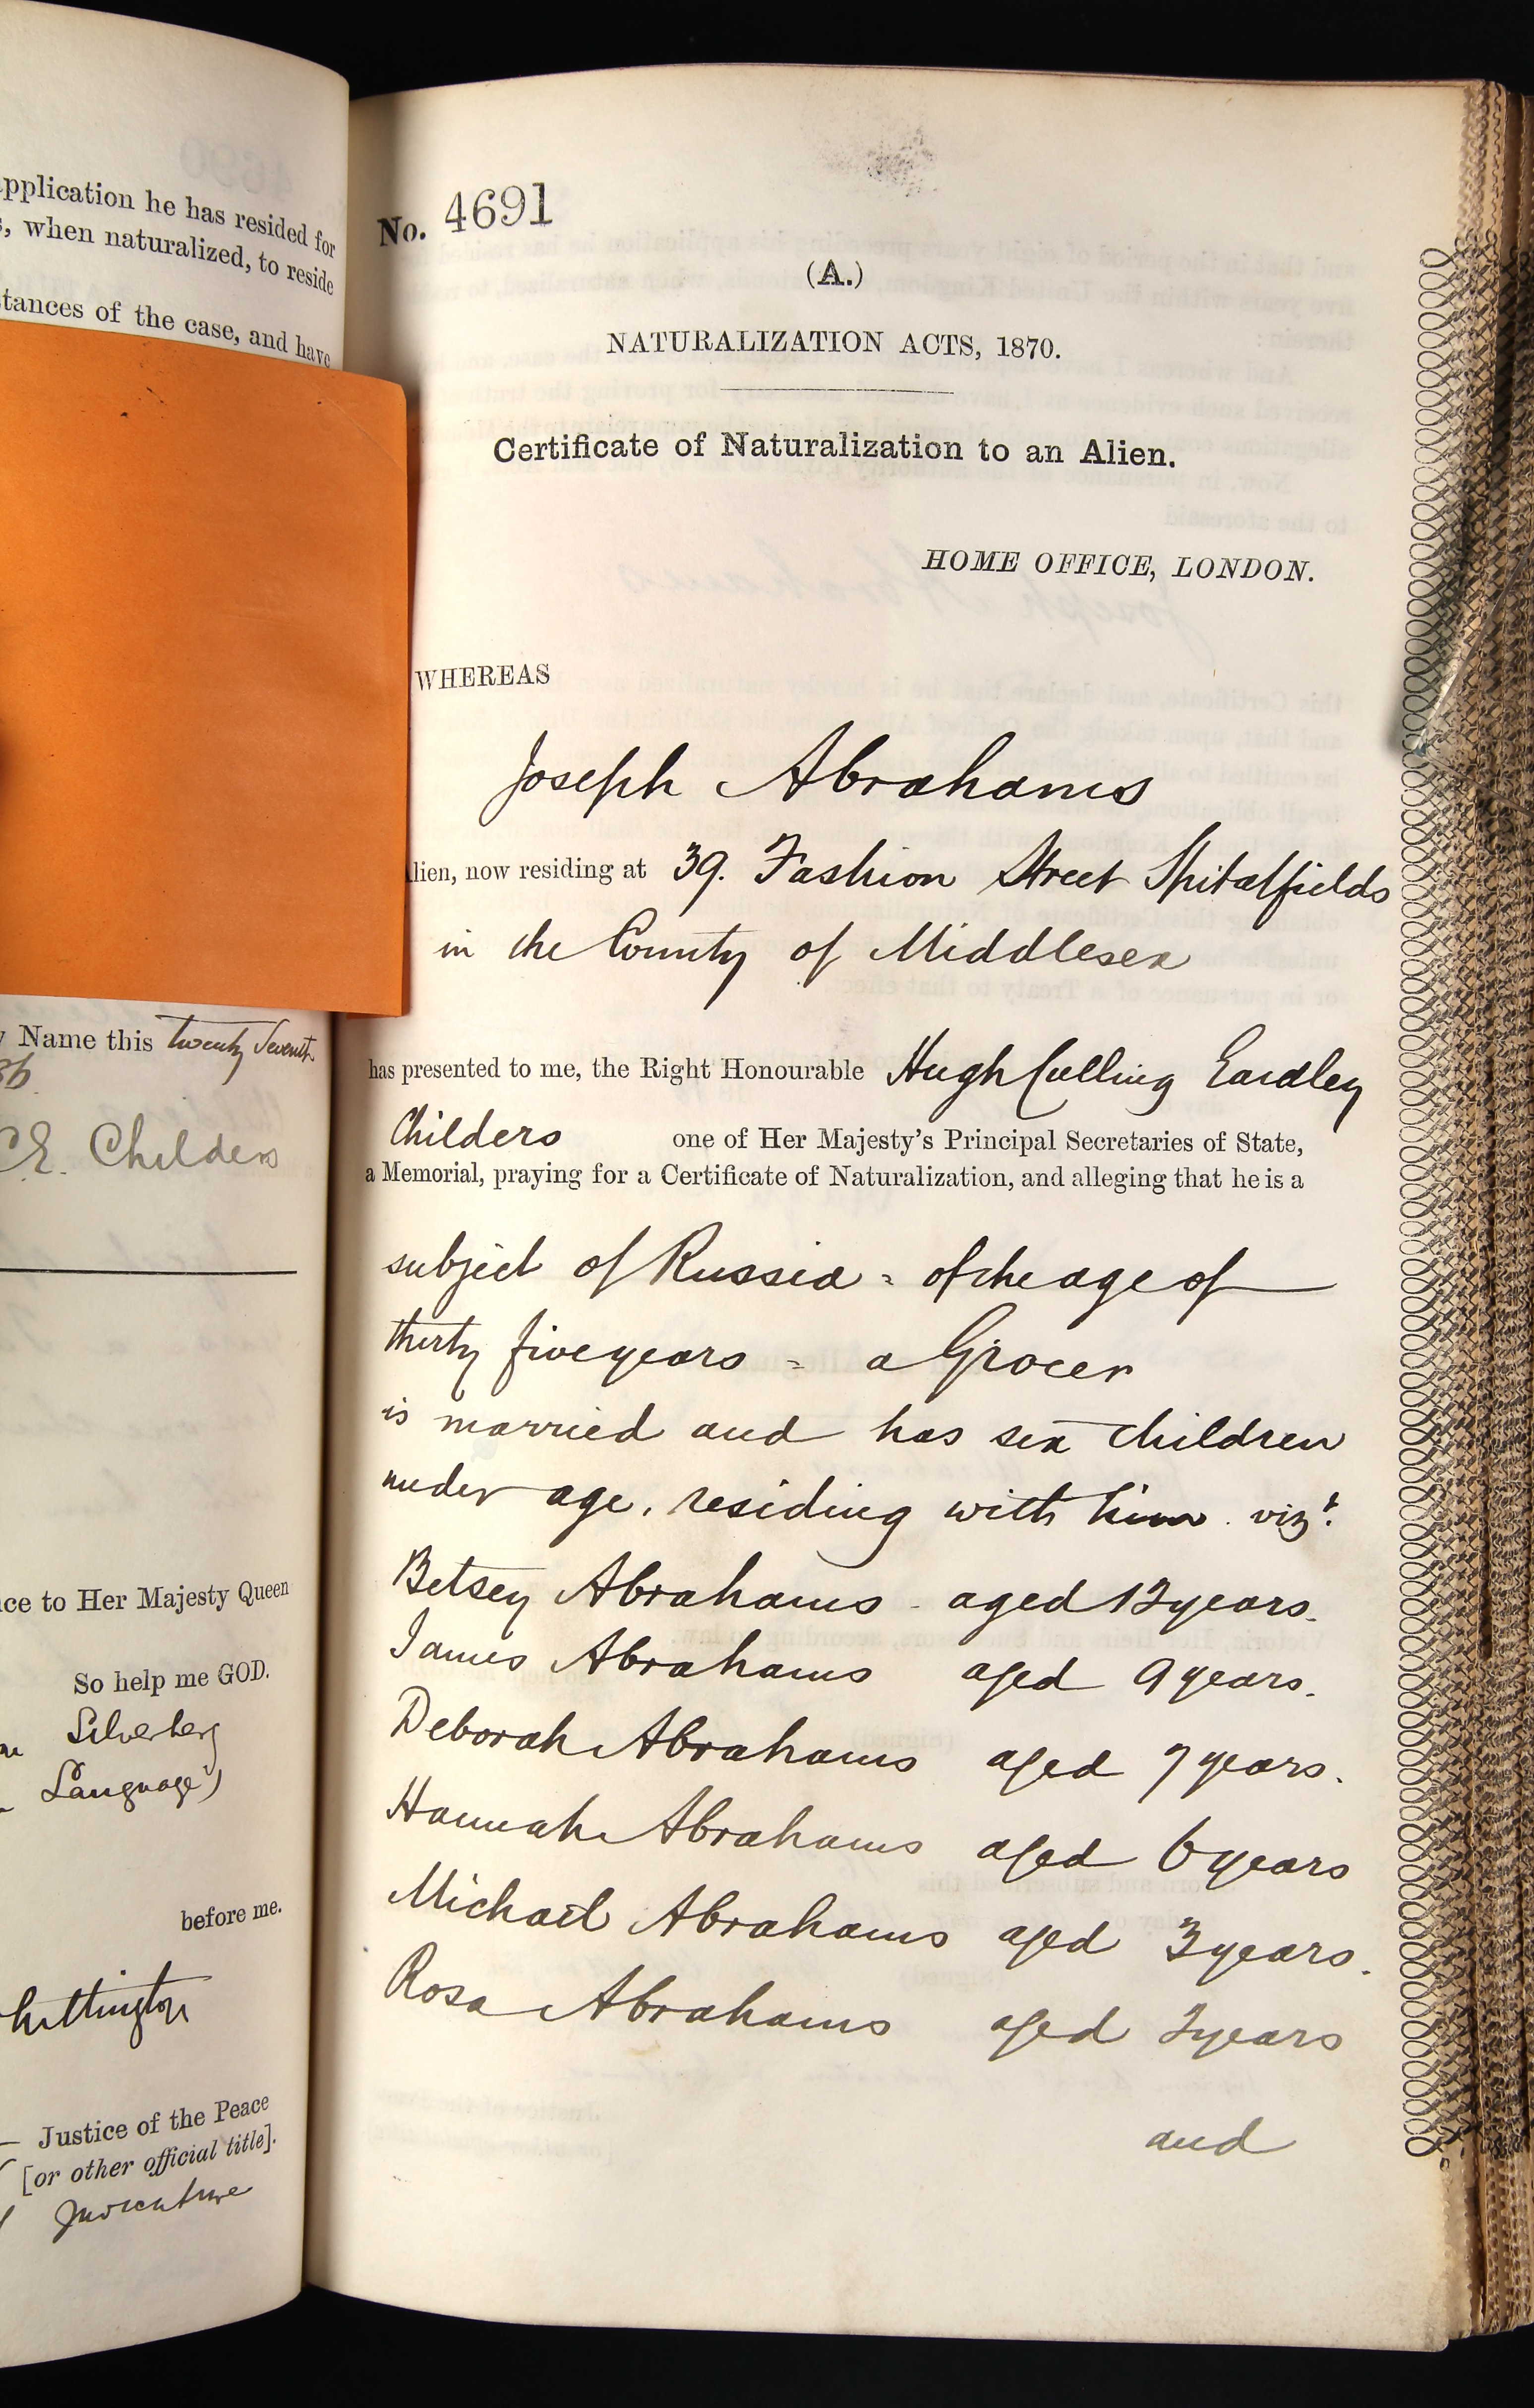 application he has resided for
, when naturalized, to reside
tances of the case, and have
Name this twenty seventh
86
C E. Childers
ce to Her Majesty Queen
So help me GOD.
Silverberg
Language)
before me.
hittington
Justice of the Peace
[or other official title].
Judicature
No. 4691
(A.)
NATURALIZATION ACTS, 1870.
Certificate of Naturalization to an Alien.
HOME OFFICE, LONDON.
WHEREAS
Joseph Abrahams
lien, now residing at 39. Fashion Street Spitalfields
in the County of Middlesex
has presented to me, the Right Honourable Hugh Culling Eardley
Childers one of Her Majesty's Principal Secretaries of State,
a Memorial, praying for a Certificate of Naturalization, and alleging that he is a
subject of Russia = of the age of
thirty five years = a Grocer
is married and has six children
under age. residing with him. vizt.
Betsey Abrahams - aged 12 years.
James Abrahams aged 9 years.
Deborah Abrahams aged 7 years.
Hannah Abrahams aged 6 years
Michael Abrahams aged 3 years.
Rosa Abrahams aged 2 years
and